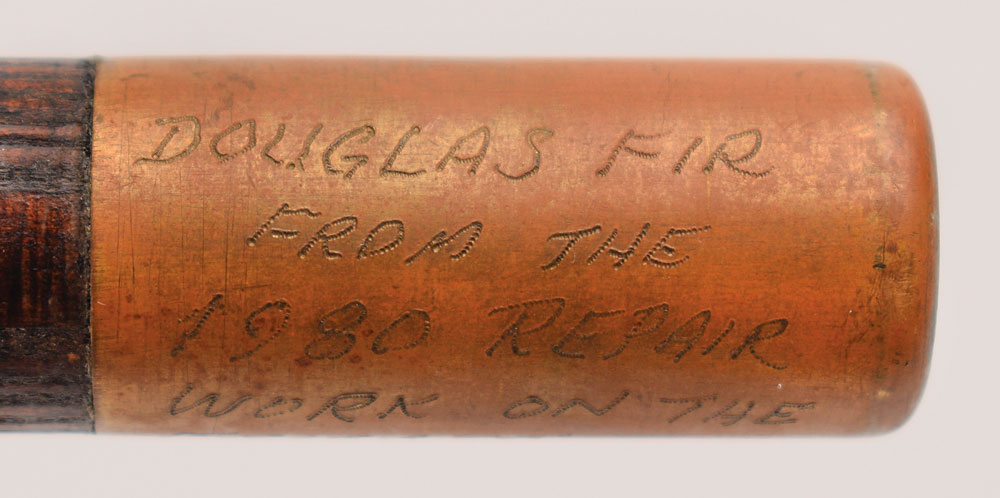 DOUGLAS FIR
FROM THE
1980 REPAIR
WORK ON THE